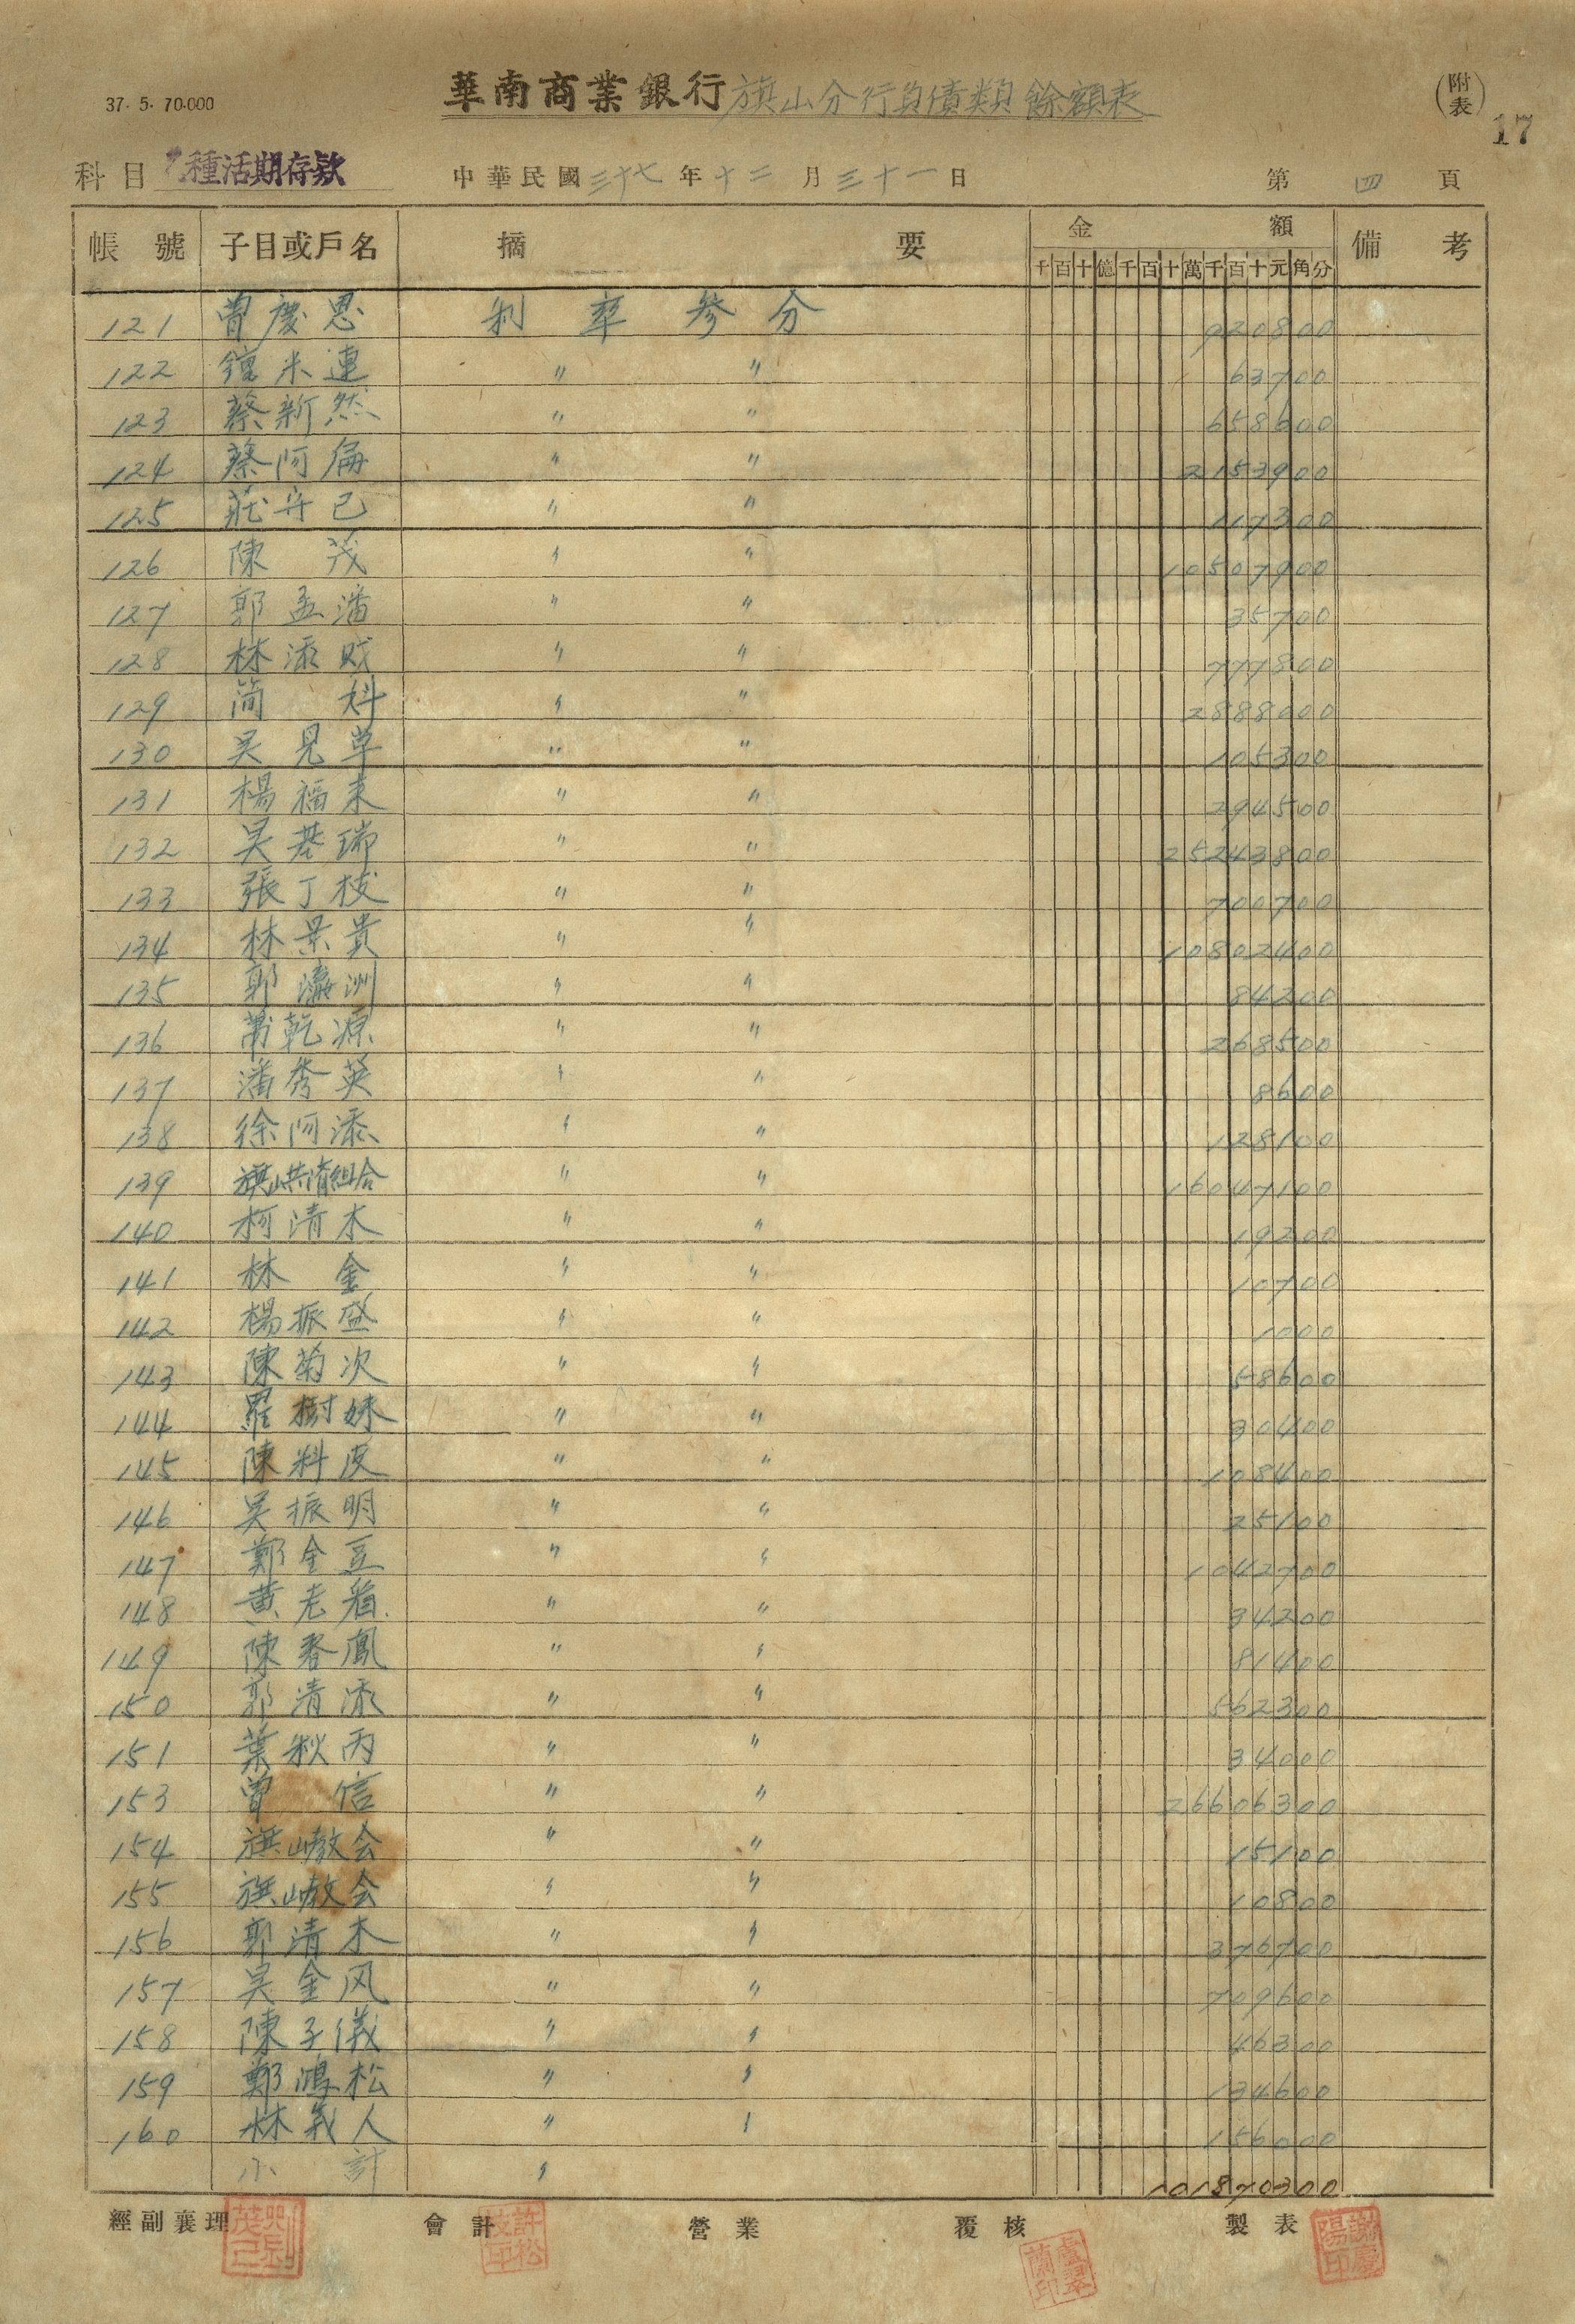 37. 5. 70.000
華南商業銀行旗山分行負債類餘額表
(附表)
17
科目 乙種活期存款 中華民國三十七年十二月三十一日 第四頁
帳號 子目或戶名 摘要 金額 備考
千百十億千百十萬千百十元角分
121 曾慶恩 利率參分 920800
122 鍾米連 〃 〃 63700
123 蔡新然 〃 〃 658600
124 蔡阿屘 〃 〃 2153900
125 莊守己 〃 〃 117300
126 陳茂 〃 〃 10507900
127 郭孟潘 〃 〃 35700
128 林添財 〃 〃 777800
129 簡科 〃 〃 2888000
130 吳見草 〃 〃 105300
131 楊福來 〃 〃 294500
132 吳基瑞 〃 〃 25243800
133 張丁枝 〃 〃 700700
134 林景貴 〃 〃 10802400
135 郭瀛洲 〃 〃 84200
136 蕭乾源 〃 〃 268500
137 潘秀英 〃 〃 8600
138 徐阿添 〃 〃 128100
139 旗山共濟組合 〃 〃 16047100
140 柯清木 〃 〃 19200
141 林金 〃 〃 10700
142 楊振盛 〃 〃 1000
143 陳菊次 〃 〃 58600
144 羅樹妹 〃 〃 30400
145 陳料皮 〃 〃 108400
146 吳振明 〃 〃 25100
147 鄭金豆 〃 〃 1042700
148 黃老看 〃 〃 34200
149 陳春鳳 〃 〃 81400
150 郭清添 〃 〃 562300
151 葉秋丙 〃 〃 34000
153 曾信 〃 〃 26606300
154 旗山教会 〃 〃 15100
155 旗山教会 〃 〃 10800
156 郭清木 〃 〃 376700
157 吳金风 〃 〃 709600
158 陳子儀 〃 〃 46300
159 鄭鴻松 〃 〃 134600
160 林義人 〃 〃 156000
小計 〃 101870300
經副襄理 會計 營業 覆核 製表